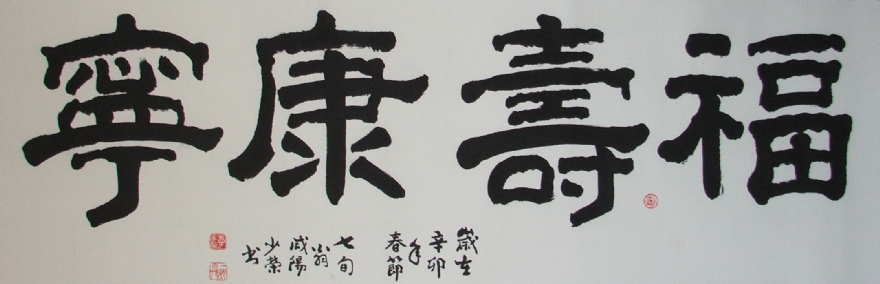 福壽康寧
歲在
辛卯
年
春節
七旬
翁
咸陽
少榮
书